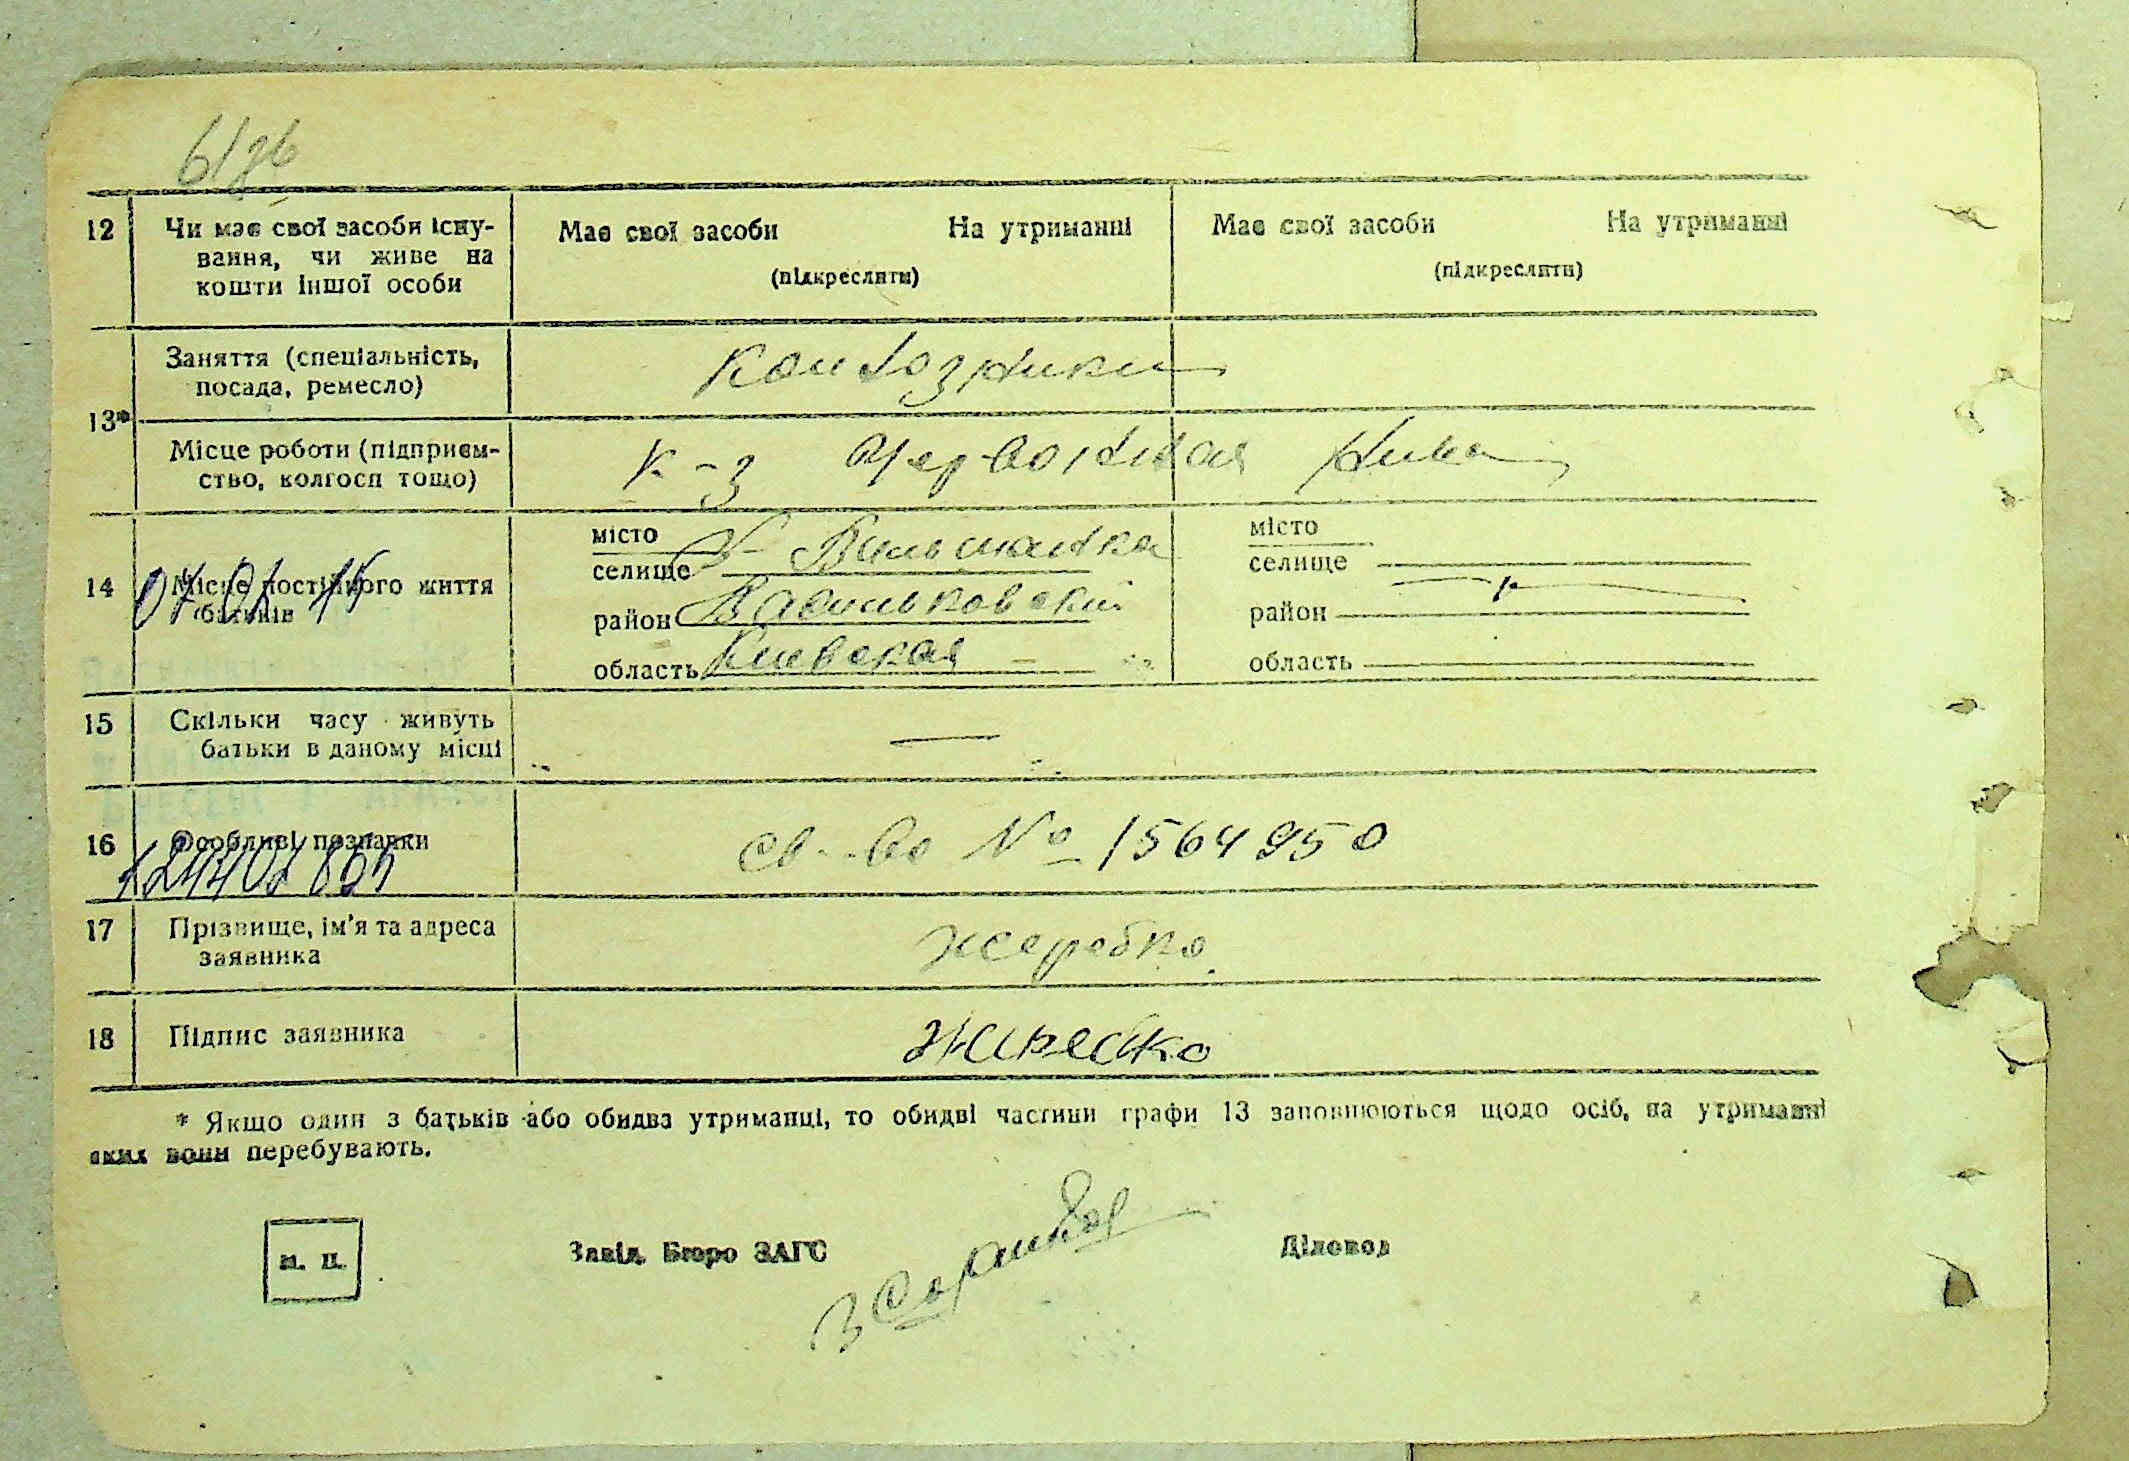 12 Чи має свої засоби існу-
вання, чи живе на
кошти іншої особи
Має свої засоби На утриманні
(підкреслити)
Має свої засоби На утриманні
(підкреслити)
13*
Заняття (спеціальність,
посада, ремесло)
Колхозники
Місце роботи (підприєм-
ство, колгосп тощо)
к-з Червонная Нива
14 Місце постійного життя
батьків
місто
селище Х- Вильшанка
район Васильковский
область Киевская
місто
селище
район
область
15 Скільки часу живуть
батьки в даному місці
—
16 Особливі познаки
св-во № 1564950
17 Прізвище, ім'я та адреса
заявника
Жеребко
18 Підпис заявника
Жеребко
* Якщо один з батьків або обидва утриманці, то обидві частини графи 13 заповнюються щодо осіб, на утриманні
яких вони перебувають.
м. п.
Завід. Бюро ЗАГС
Діловод